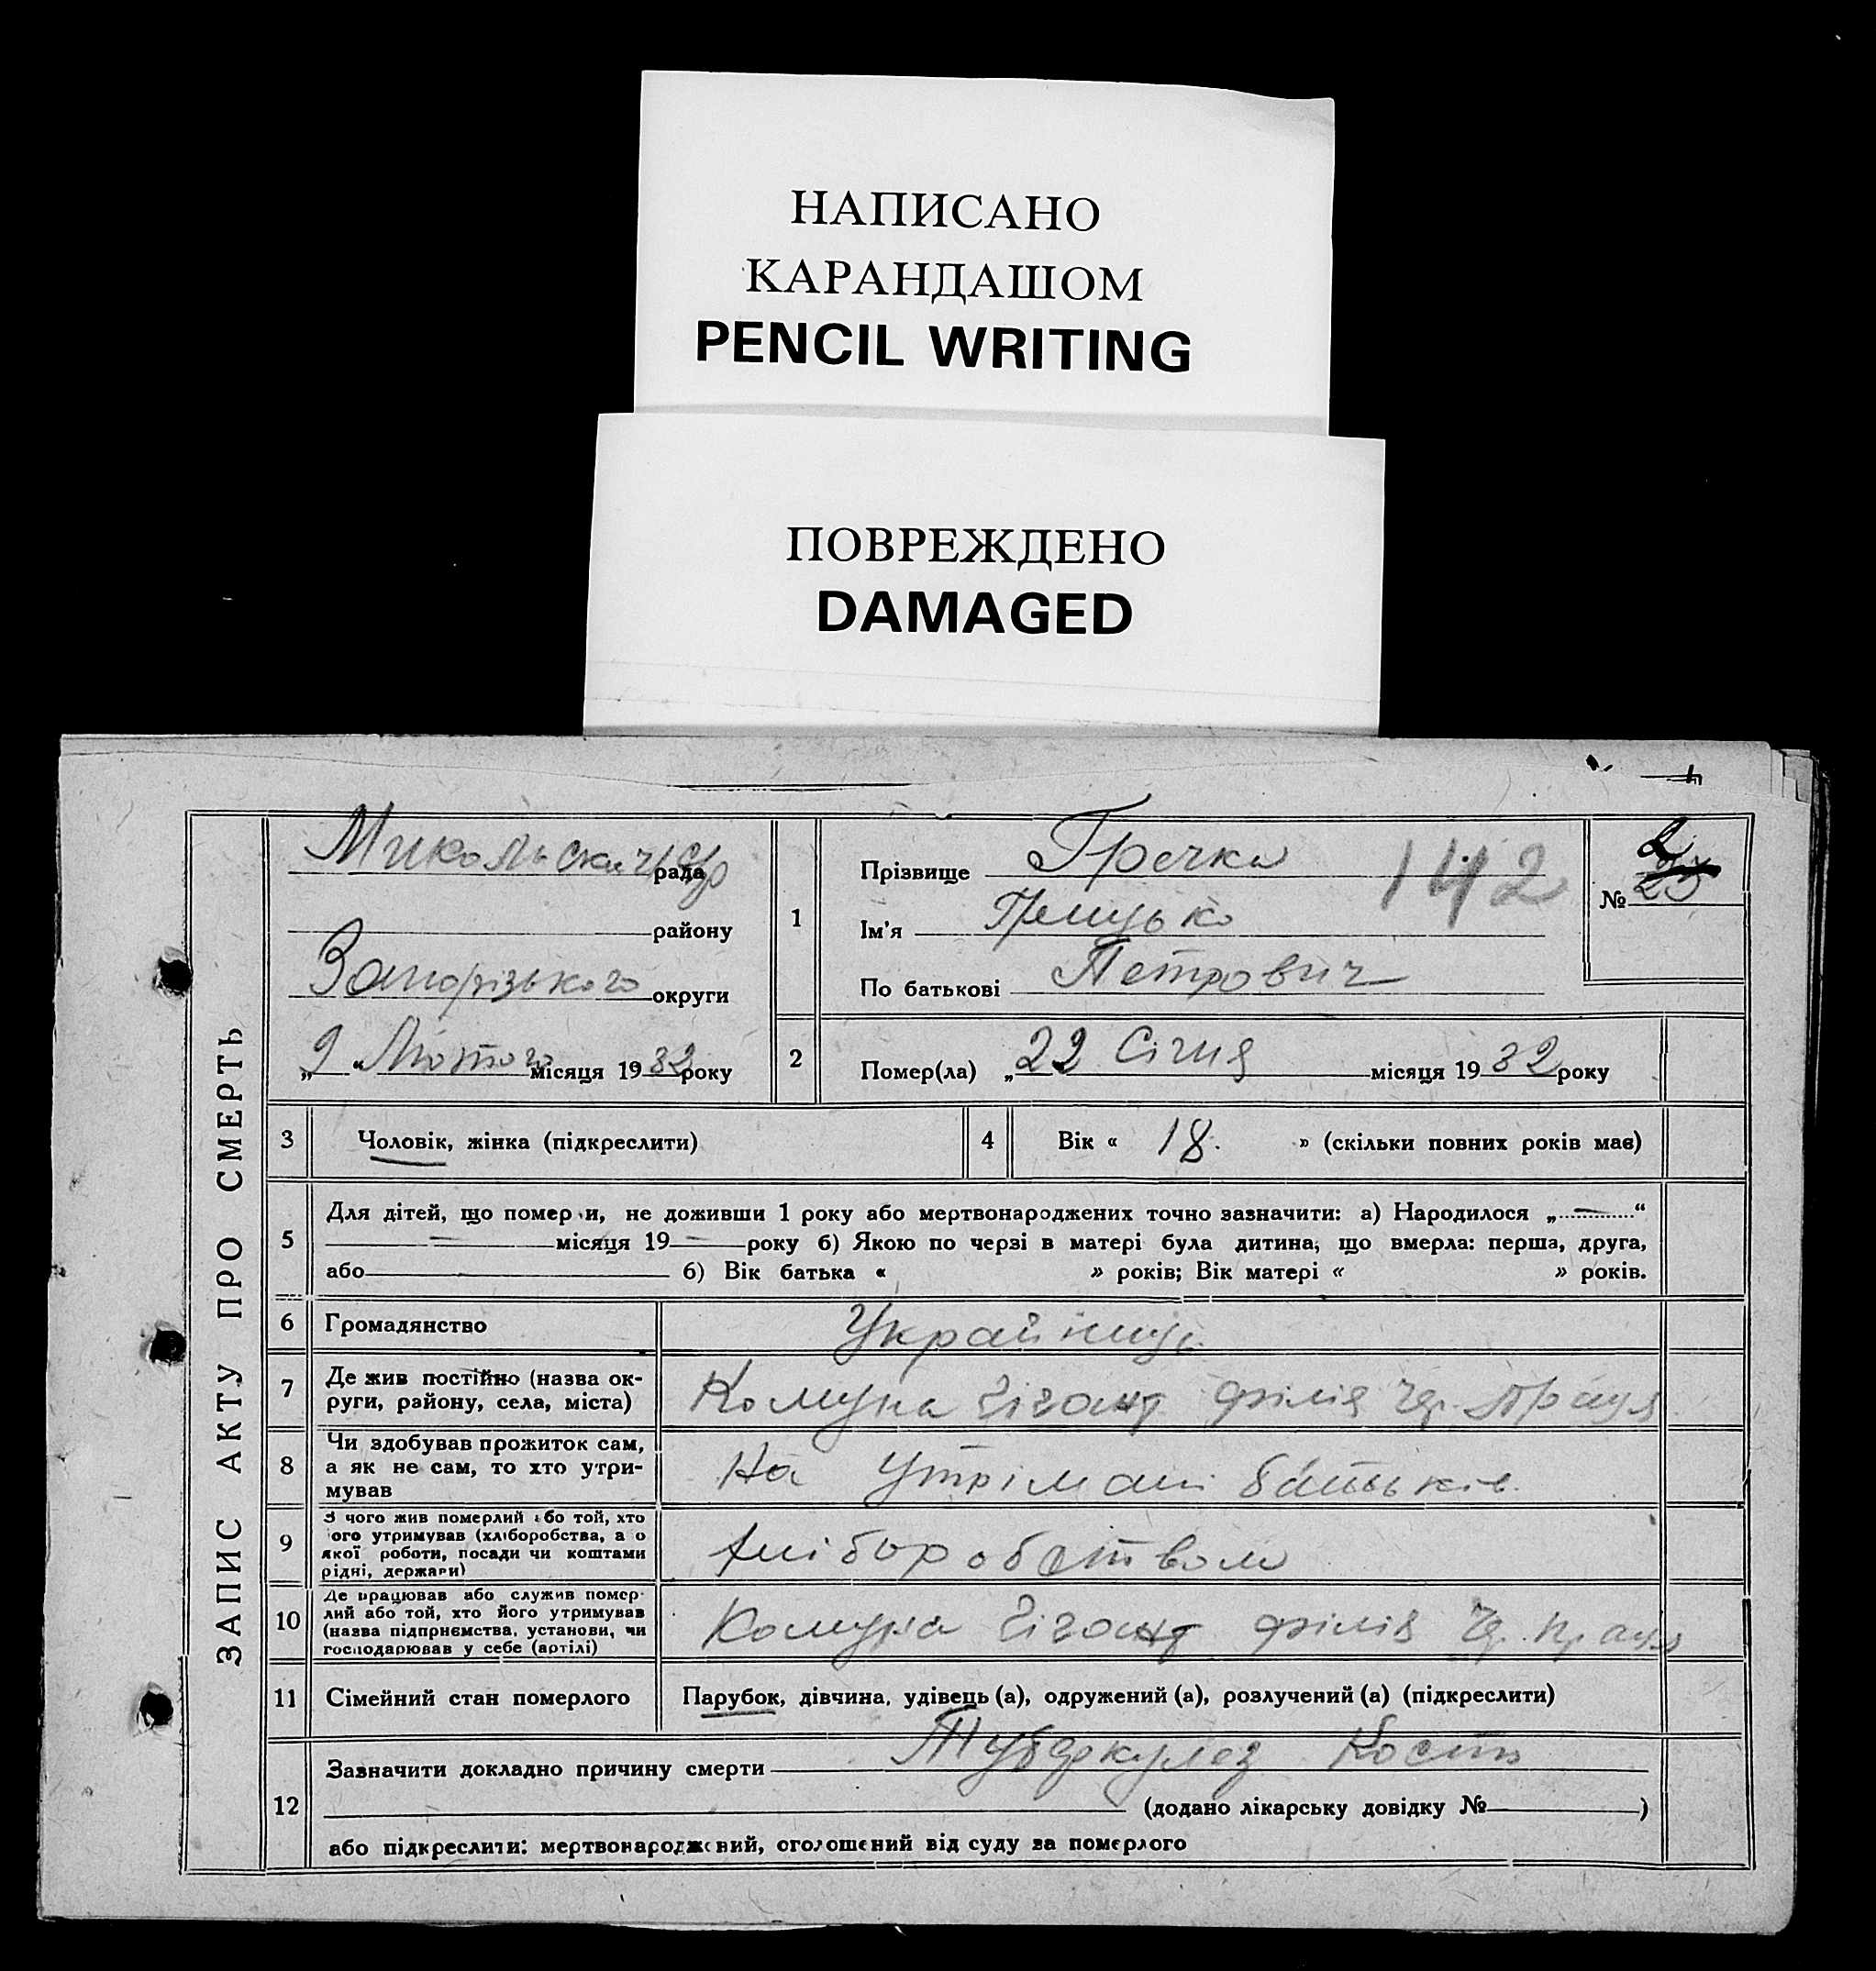 НАПИСАНО
КАРАНДАШОМ
PENCIL WRITING
ПОВРЕЖДЕНО
DAMAGED
ЗАПИС АКТУ ПРО СМЕРТЬ
Микольська рада
району
Запорізького округи
„9“ Лютого місяця 1932 року
1
Прізвище Гречка
142
Ім'я Грицько
По батькові Петрович
№ 2 25
2
Помер(ла) „22 Січня місяця 1932 року
3 Чоловік, жінка (підкреслити)
4 Вік « 18. » (скільки повних років має)
5
Для дітей, що померли, не доживши 1 року або мертвонароджених точно зазначити: а) Народилося „ — “
— місяця 19 — року б) Якою по черзі в матері була дитина, що вмерла: перша, друга,
або б) Вік батька « » років; Вік матері « » років.
6 Громадянство Украйинць
7
Де жив постійно (назва ок-
руги, району, села, міста)
Комуна Гігант філія Чер. Праця
8
Чи здобував прожиток сам,
а як не сам, то хто утри-
мував
На Утрімані батьків.
9
З чого жив померлий або той, хто
ого утримував (хліборобства, а о
якої роботи, посади чи коштами
рідні, держави)
Хліборобством
10
Де працював або служив помер-
лий або той, хто його утримував
(назва підприємства, установи, чи
господарював у себе (артілі)
Комуна Гігант філія Чер. Праця
11 Сімейний стан померлого Парубок, дівчина, удівець (а), одружений (а), розлучений (а) (підкреслити)
12
Зазначити докладно причину смерти Туберкулез Кости
(додано лікарську довідку № )
або підкреслити: мертвонароджений, оголошений від суду за померлого